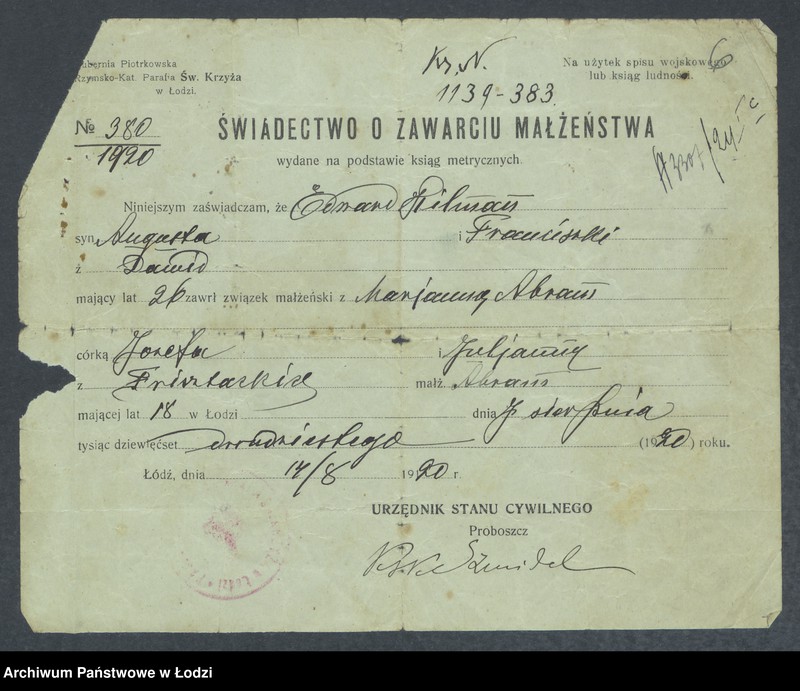 Gubernia Piotrkowska
Rzymsko-Kat. Parafia Św. Krzyża
w Łodzi.
Kr. N.
1139-383
Na użytek spisu wojskowego
lub ksiąg ludności.
6
№ 380
1920
ŚWIADECTWO O ZAWARCIU MAŁŻEŃSTWA
wydane na podstawie ksiąg metrycznych
Niniejszym zaświadczam, że Edward
syn Augusta i Franciszki
z Dawid
mający lat 26 zawrł związek małżeński z Marjanną Abram
córką Józefa i Juljanny
z małż. Abram
mającej lat 18 w Łodzi dnia sierpnia
tysiąc dziewięćset dwudziestego (1920) roku.
Łódź, dnia 17/8 1920 r.
URZĘDNIK STANU CYWILNEGO
Proboszcz
Archiwum Państwowe w Łodzi